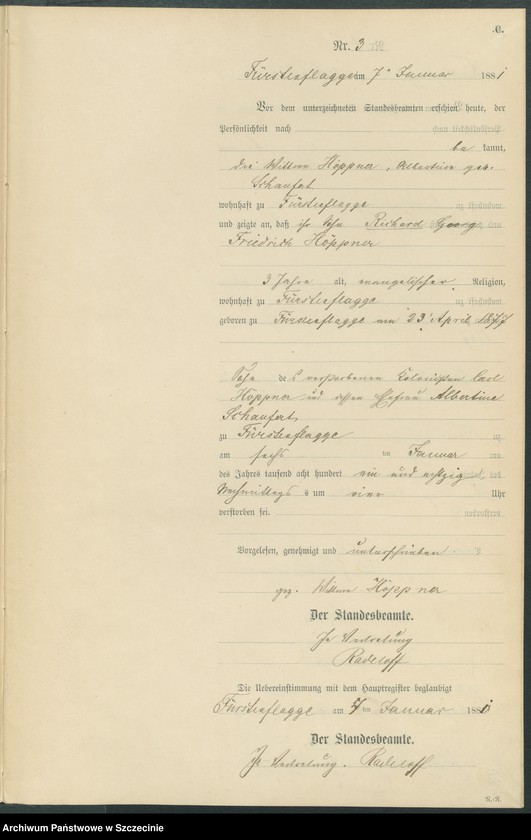 C.
Nr. 3
Fürstenflagge am 7ᵗ Januar 1881
Vor dem unterzeichneten Standesbeamten erschien heute, der
Persönlichkeit nach
be kannt,
die Wittwe Höppner, Albertine geb.
Schaufert
wohnhaft zu Fürstenflagge
und zeigte an, daß ihr Sohn Richard Georg
Friedrich Höppner
3 Jahre alt, evangelischer Religion,
wohnhaft zu Fürstenflagge
geboren zu Fürstenflagge am 23ᵗ April 1877
Sohn des verstorbenen Kolonisten Carl
Höppner und dessen Ehefrau Albertine
Schaufert,
zu Fürstenflagge
am sechs ten Januar
des Jahres tausend acht hundert ein und achtzig
Nachmittags um vier Uhr
verstorben sei.
Vorgelesen, genehmigt und unterschrieben
gez. Wittwe Höppner
Der Standesbeamte.
In Vertretung
Radeloff
Die Uebereinstimmung mit dem Hauptregister beglaubigt
Fürstenflagge am ten Januar 1881
Der Standesbeamte.
In Vertretung. Radeloff
Archiwum Państwowe w Szczecinie